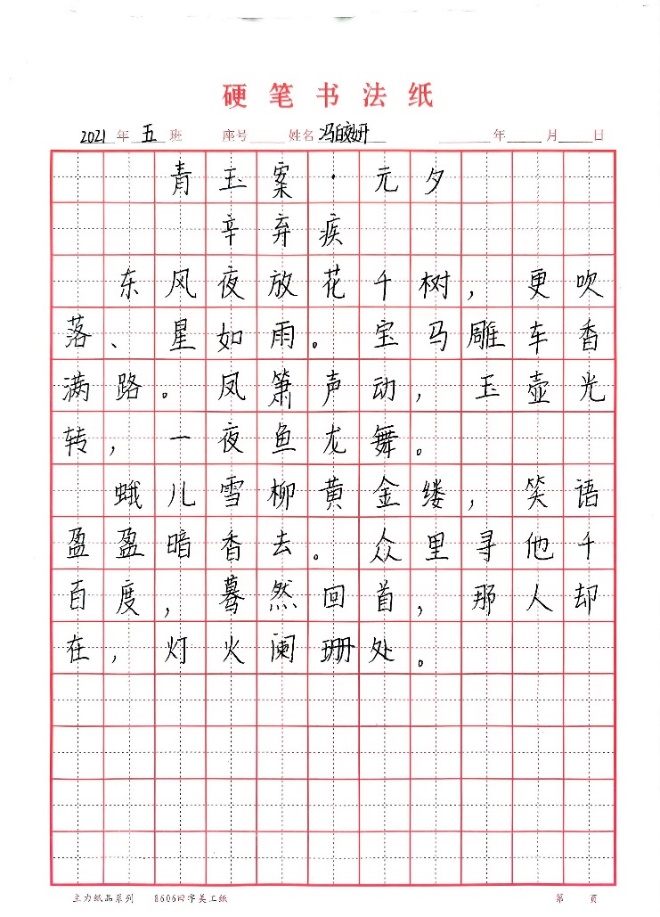 硬笔书法纸
2021年 五班 座号 姓名冯皎妍 年 月 日
青玉案·元夕
辛弃疾
东风夜放花千树，更吹
落、星如雨。宝马雕车香
满路。凤箫声动，玉壶光
转，一夜鱼龙舞。
蛾儿雪柳黄金缕，笑语
盈盈暗香去。众里寻他千
百度，蓦然回首，那人却
在，灯火阑珊处。
主力纸品系列 8606四字美工纸 第 页